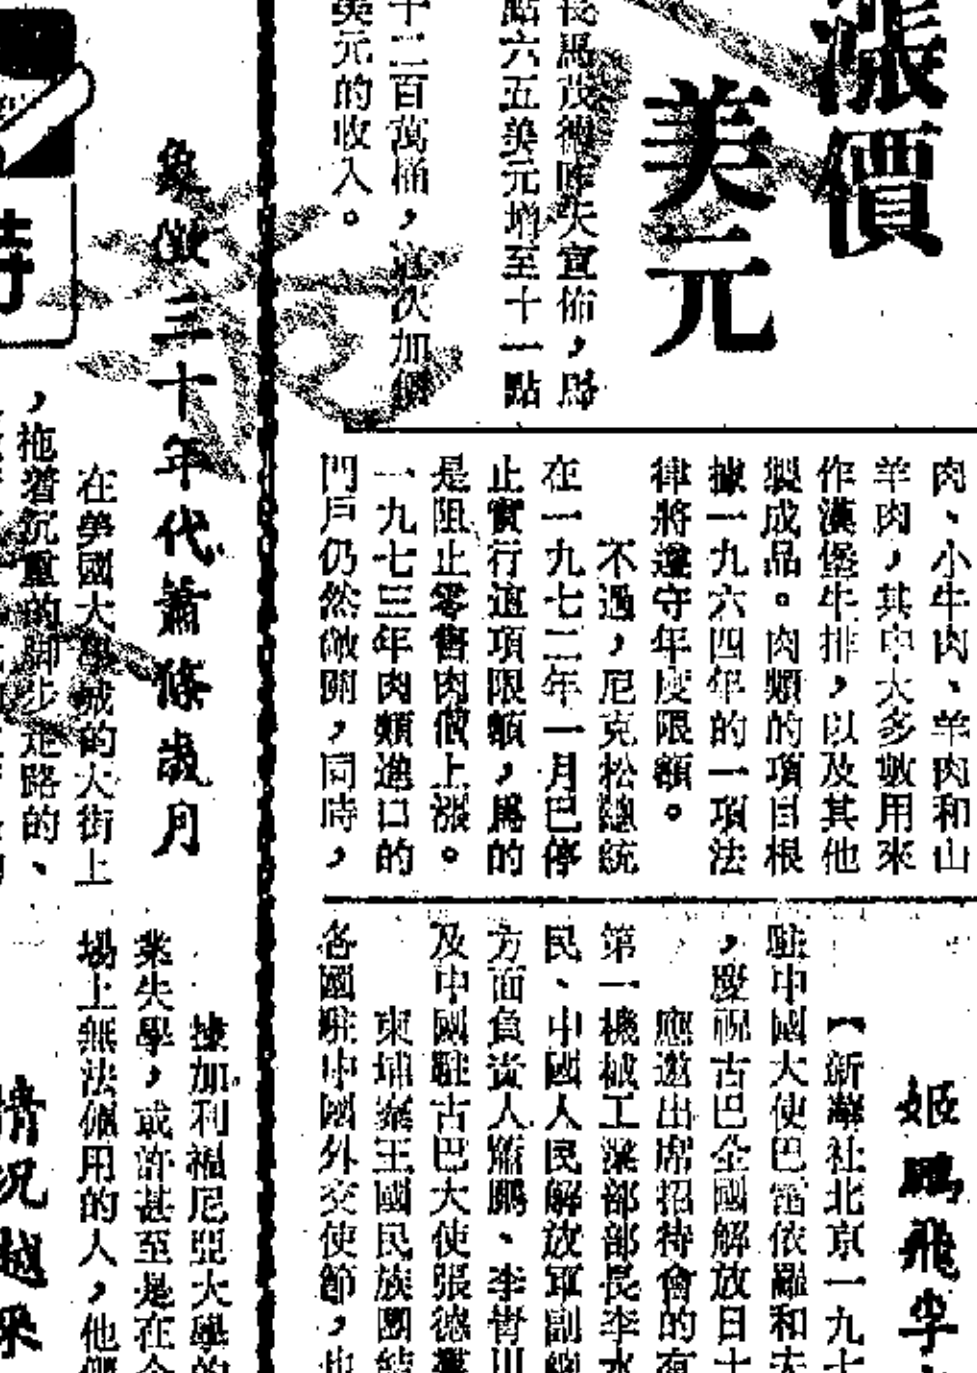 漲價
美元
長馬茂德昨天宣佈,
點六五美元增至十一點
十二百萬桶,這次加價
美元的收入。
肉、小牛肉、羊肉和山
羊肉,其中大多數用來
作漢堡牛排,以及其他
製成品。肉類的項目根
據一九六四年的一項法
律將遵守年度限額。
不過,尼克松總統
在一九七二年一月巳停
止實行這項限額,爲的
是阻止零售肉價上漲。
一九七三年肉類進口的
門戶仍然敞開,同時,
姬鵬飛李
【新華社北京一九七
駐中國大使巴雷依羅和夫
,慶祝古巴全國解放日十
應邀出席招待會的有
第一機械工業部部長李水
民、中國人民解放軍副總
方面負責人 鵬、李青川
及中國駐古巴大使張德羣
柬埔寨王國民族團結
各國駐中國外交使節,也
象徵三十年代蕭條歲月
在美國大學城的大街上
,拖着沉重的脚步走路的、
據加利福尼亞大學的
業失學,或許甚至是在今
場上無法僱用的人,他們
情况越來